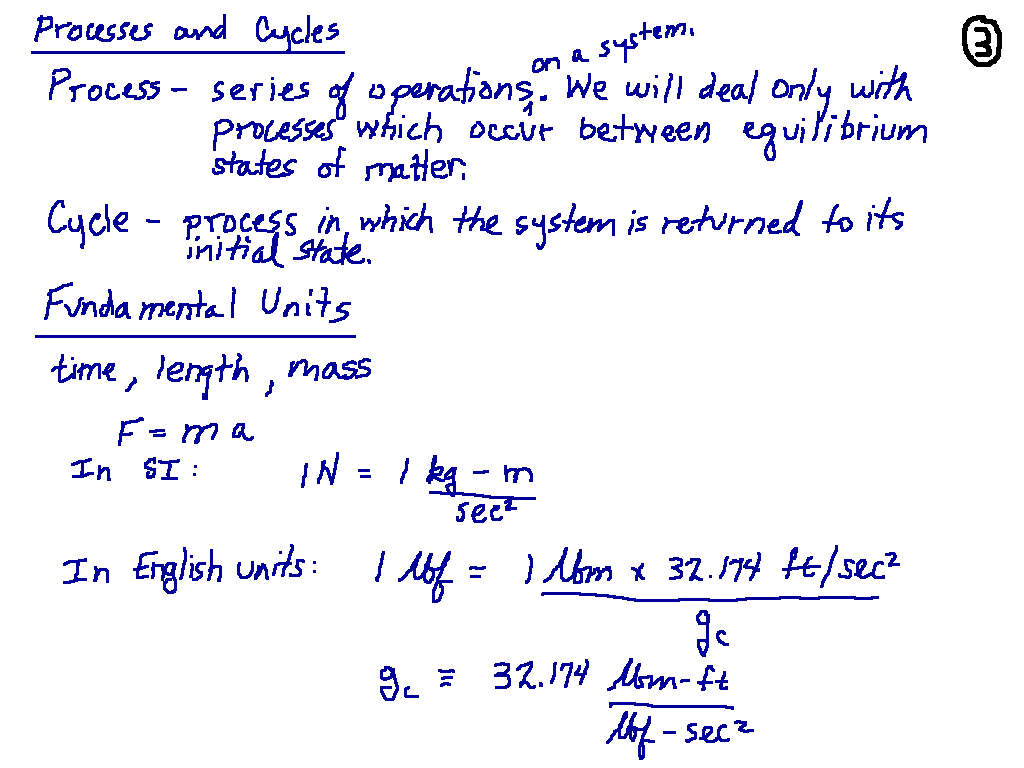 Processes and Cycles
3
on a system.
Process - series of operations. We will deal only with
processes which occur between equilibrium
states of matter.
Cycle - process in which the system is returned to its
initial state.
Fundamental Units
time, length, mass
F = m a
In SI: 1 N = 1 kg - m
sec²
In English units: 1 lbf = 1 lbm x 32.174 ft/sec²
gc
gc ≡ 32.174 lbm-ft
lbf - sec²